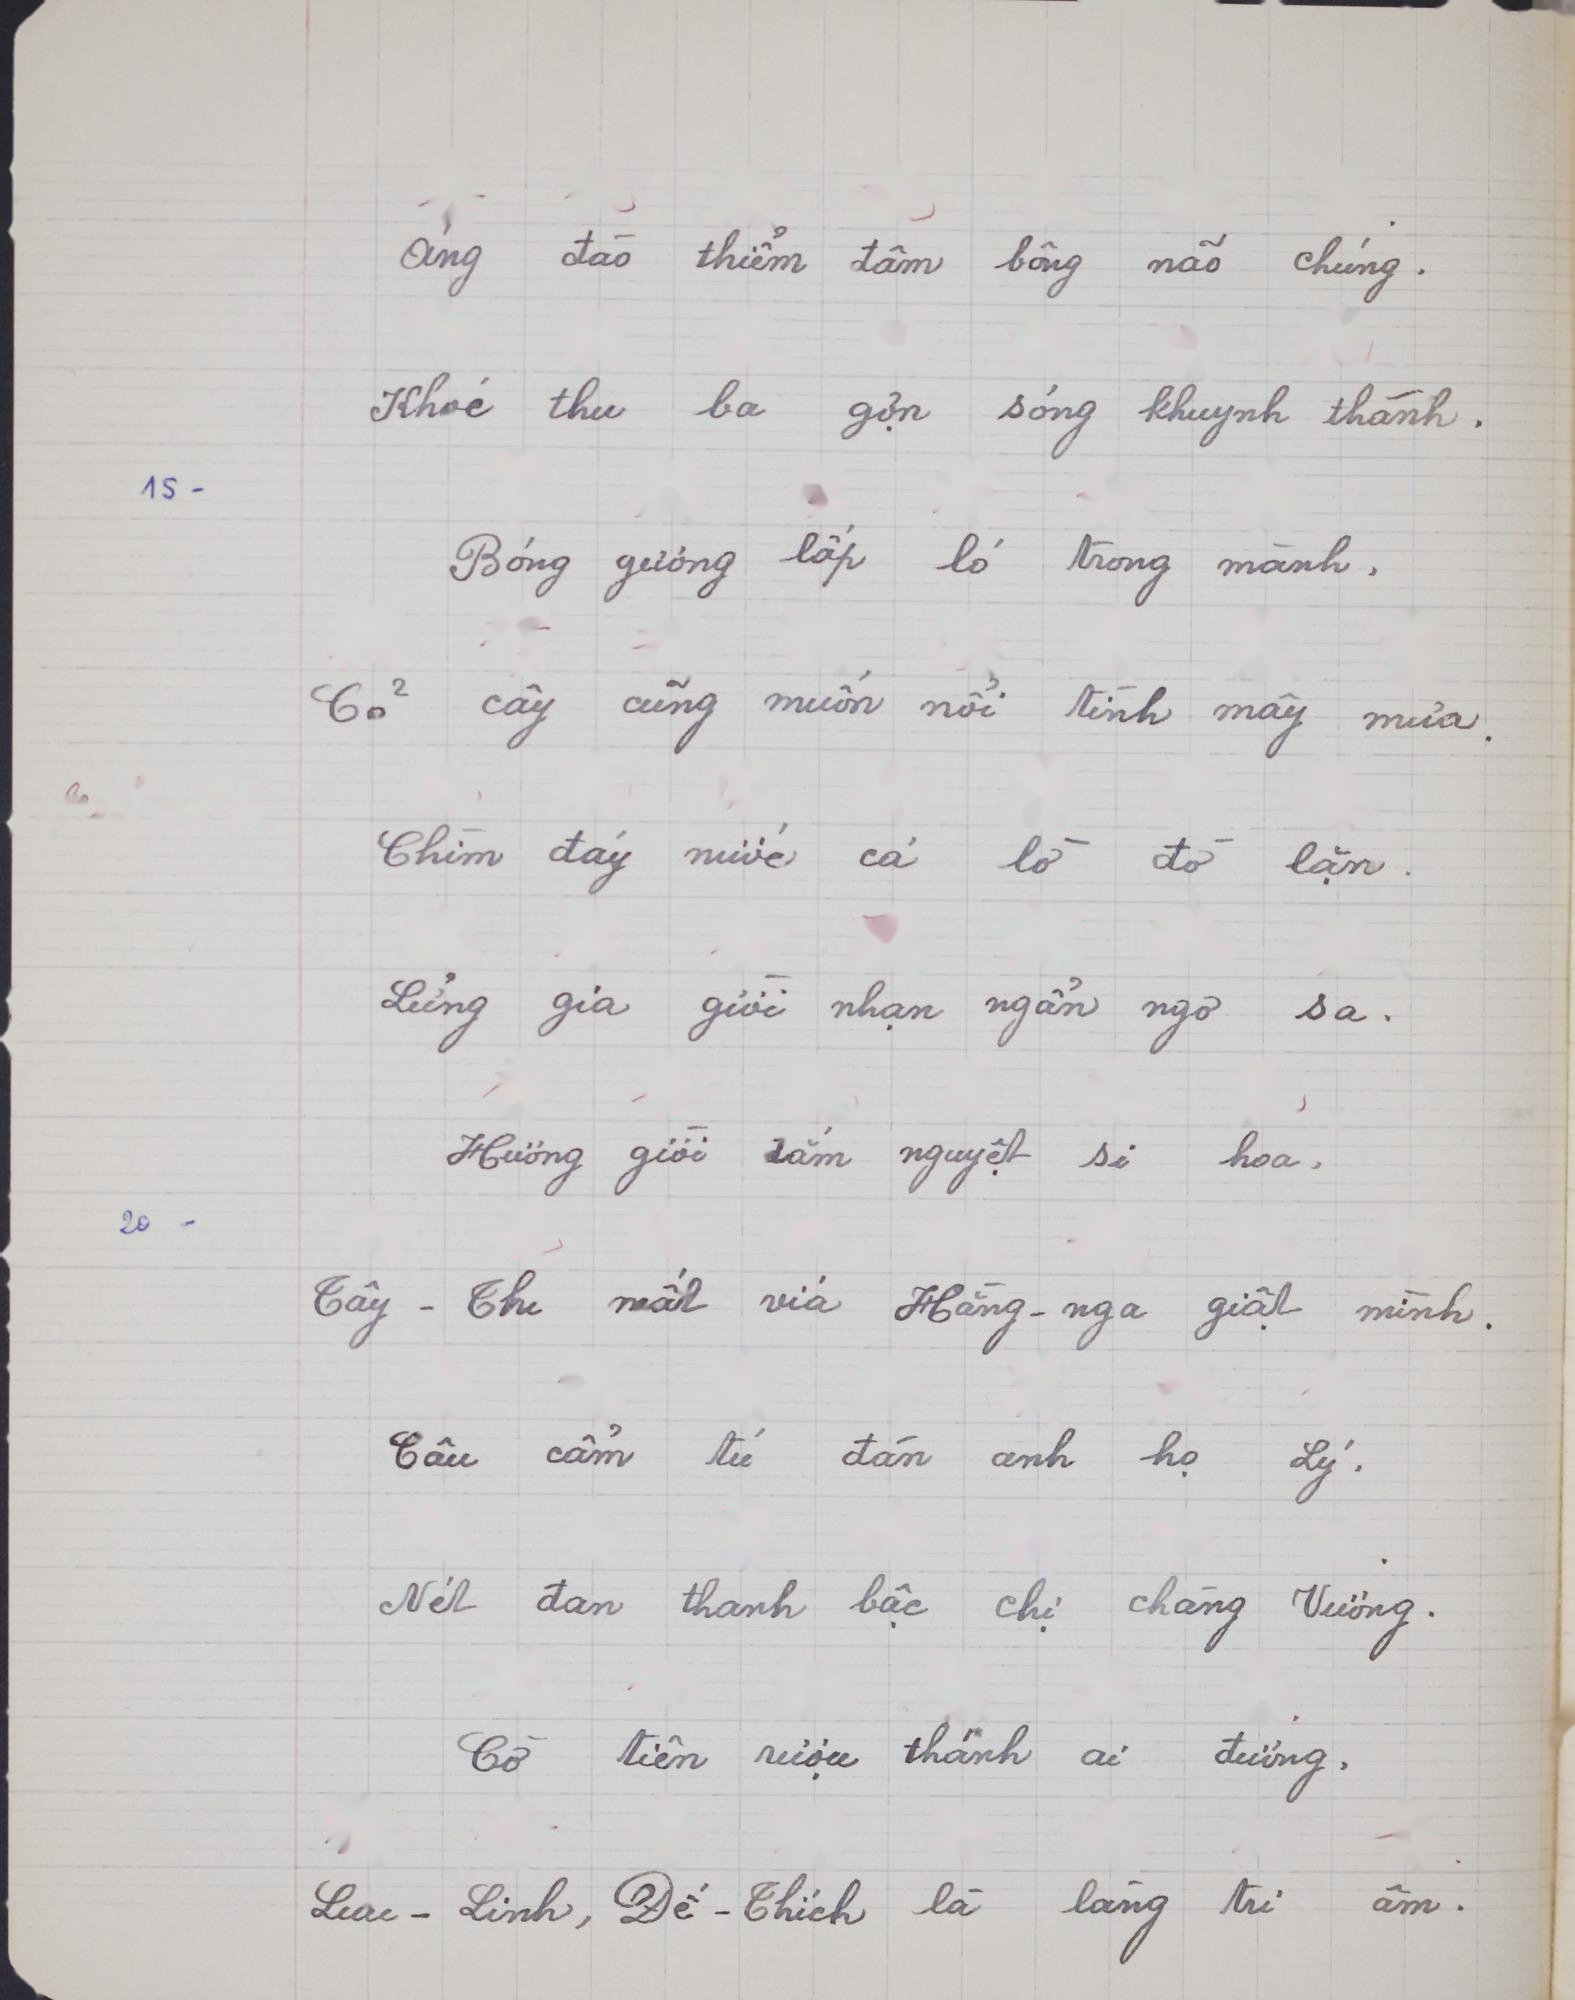 Áng đào thiểm đâm bông não chúng.
Khoé thu ba gợn sóng khuynh thành.
15 -
Bóng gương lấp ló trong mành.
Cỏ cây cũng muốn nổi tình mây mưa.
Chìm đáy nước cá lờ đờ lặn.
Lửng gia giời nhạn ngẩn ngơ sa.
Hương giời đắm nguyệt si hoa.
20 -
Tây - Thi mất viá Hằng - nga giật mình.
Câu cẩm tú đàn anh họ Lý.
Nét đan thanh bậc chị chàng Vương.
Cờ tiên rượu thánh ai đương.
Lưu - Linh, Đế - Thích là làng tri âm.